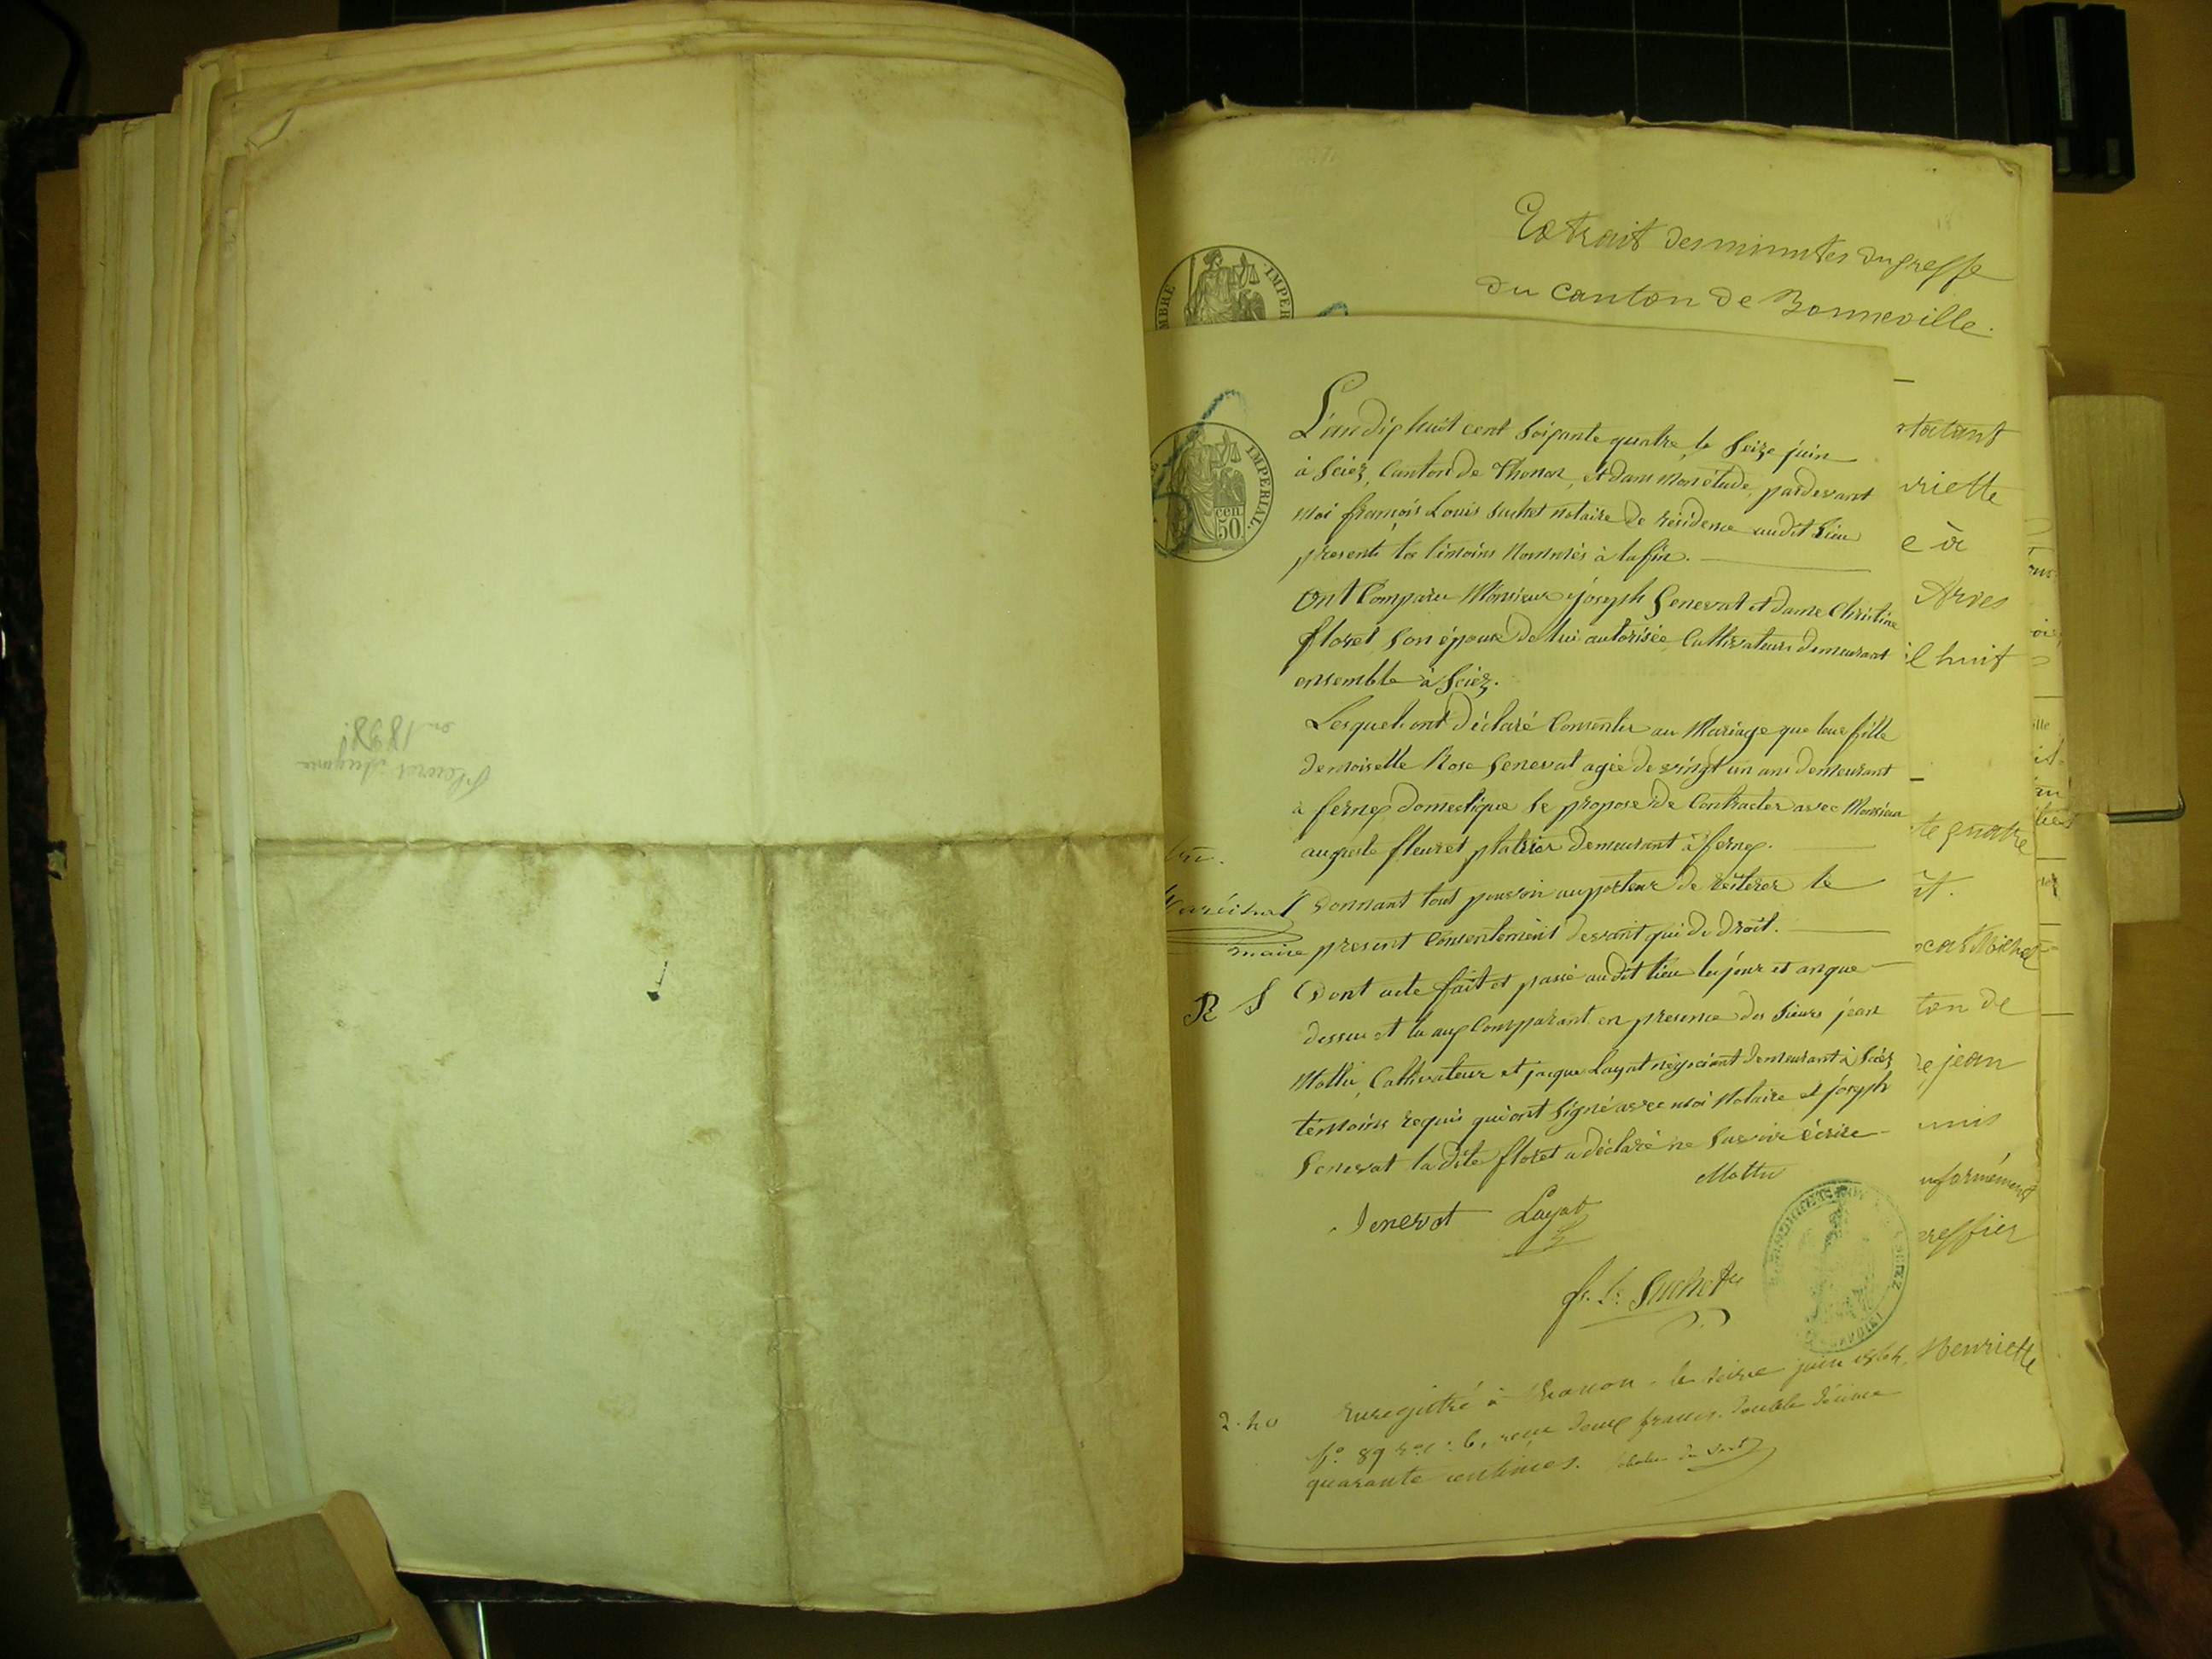 Extrait des minutes du greffe
du canton de Bonneville.
TIMBRE IMPERIAL
50 cen
L'an dix huit cent soixante quatre, le seize juin
à Sciez, Canton de Thonon, et dans mon étude, pardevant
moi françois Louis Suchet notaire de résidence audit lieu
présents les témoins nommés à la fin.
Ont Comparu Monsieur joseph Genevat et dame Christine
floret son épouse de lui autorisée, Cultivateurs demeurant
ensemble à Sciez.
Lesquels ont déclaré Consentir au Mariage que leur fille
demoiselle Rose Genevat agée de vingt un ans demeurant
à fernex domestique se propose de Contracter avec Monsieur
auguste fleuret platrier demeurant à fernex.
Donnant tout pouvoir au porteur de réitérer le
present Consentement devant qui de droit.
maire
Dont acte fait et passé audit lieu les jour et an que
R S
dessus et lu aux Comparant en presence des sieurs jean
Mottu, Cultivateur et jacque Layat négociant demeurant à Sciez
témoins requis qui ont signé avec moi Notaire et joseph
Genevat la dite floret a déclaré ne savoir écrire
Mottu
Genevat Layat
f. L. Suchet
enregistré à Thonon le seize juin 1864,
f° 89 r° c: 6, reçu deux francs, double décime
quarante centimes.
2.40
rtatant
riette
e à
Arves
il huit
te quatre
ton de
re jean
unis
nformément
greffier
Henriette
Fleuret Auguste
en 1838